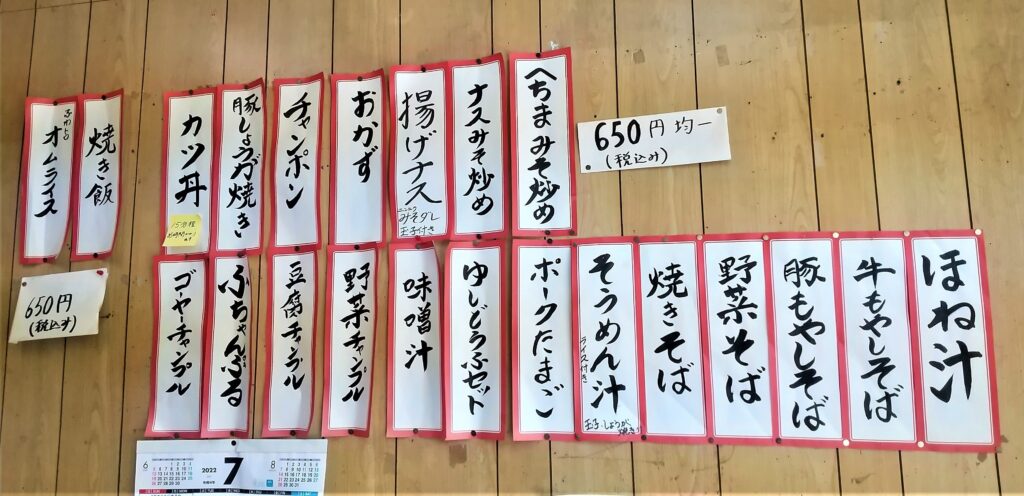 へちまみそ炒め
ナスみそ炒め
揚げナス
みそダレ
玉子付き
おかず
チャンポン
豚しょうが焼き
カツ丼
焼き飯
オムライス
650円均一
(税込み)
650円
(税込み)
ほね汁
牛もやしそば
豚もやしそば
野菜そば
焼きそば
そうめん汁
ライス付き
ポークたまご
ゆしどうふセット
味噌汁
野菜チャンプル
豆腐チャンプル
ふちゃんぷる
ゴーヤーチャンプル
6
2022
7
8